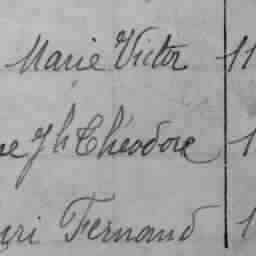 Marie Victor 11
ne Jh Théodore 1
nri Fernand 1